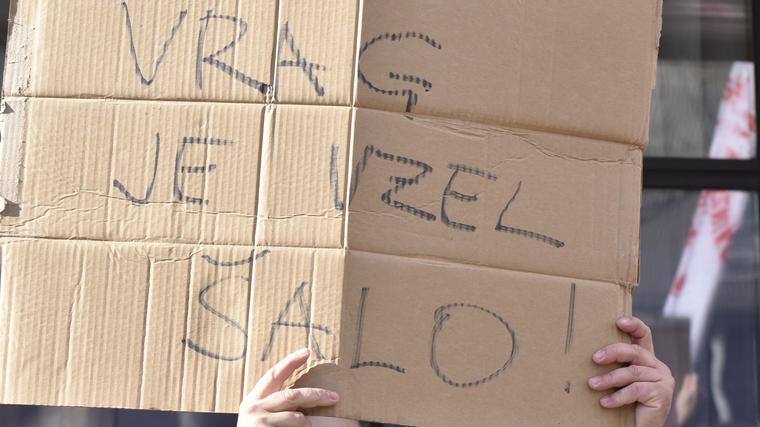 VRAG
JE VZEL
ŠALO!